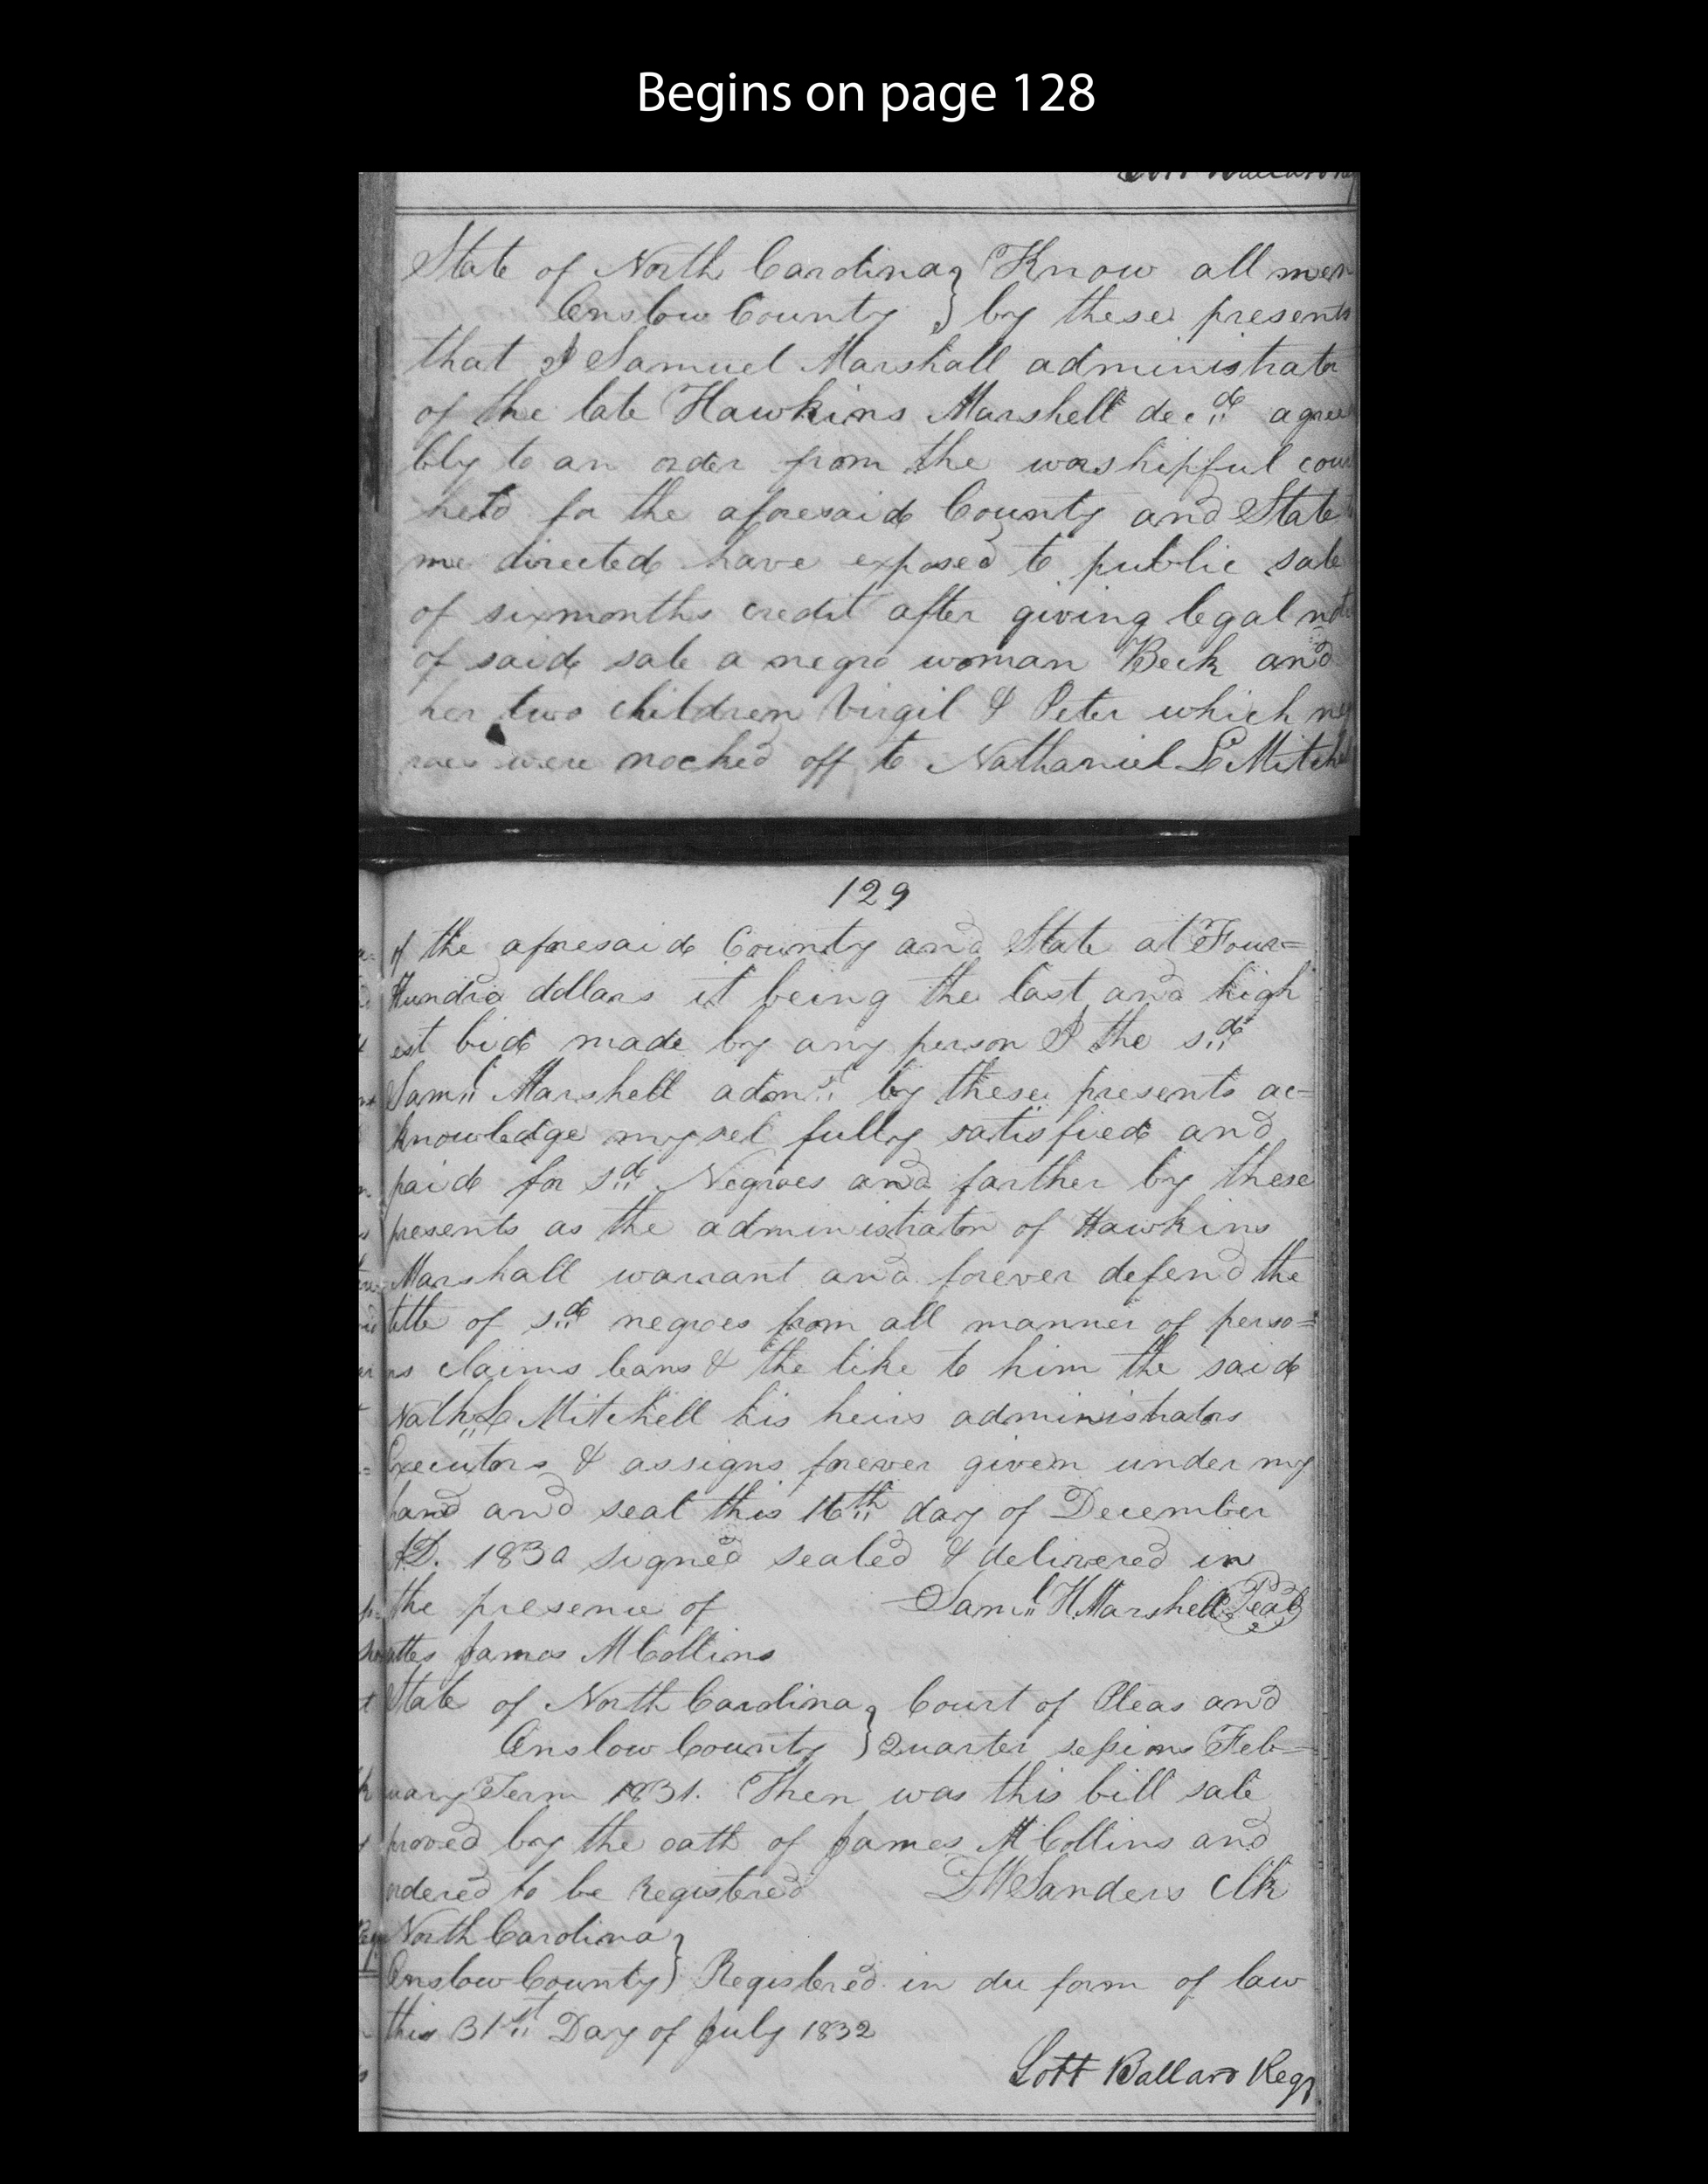 Begins on page 128
State of North Carolina } Know all men
Onslow County } by these presents
that I Samuel Marshall administrator
of the late Hawkins Marshell dec.d agree
bly to an order from the worshipful cou
held for the aforesaid County and State
me directed have exposed to public sale
of sixmonths credit after giving legal
of said sale a negro woman Beck and
her two children Virgil & Peter which ne
roes were nocked off to Nathaniel L Mitche
129
of the aforesaid County and State at Four=
Hundrd dollars it being the last and high
est bid made by any person I the s.d
Sam.l Marshell adm.r by these presents ac=
knowledge myself fully satisfied and
paid for s.d Negroes and farther by these
presents as the administrator of Hawkins
Marshall warrant and forever defend the
title of s.d negroes from all manner of perso=
ns claims leans & the like to him the said
Nath. L Mitchell his heirs administrators
Executors & assigns forever given under my
hand and seal this 16th day of December
A.D. 1830 signed sealed & delivered in
the presence of Sam.l H. Marshell Seal
attes James M Collins
State of North Carolina } Court of Pleas and
Onslow County } Quarter sessions Feb=
uary Term 1831. Then was this bill sale
proved by the oath of James M Collins and
ordered to be Registered D W Sanders Clk
North Carolina }
Onslow County } Registered in du form of law
this 31st Day of July 1832
Lott Ballard Regr